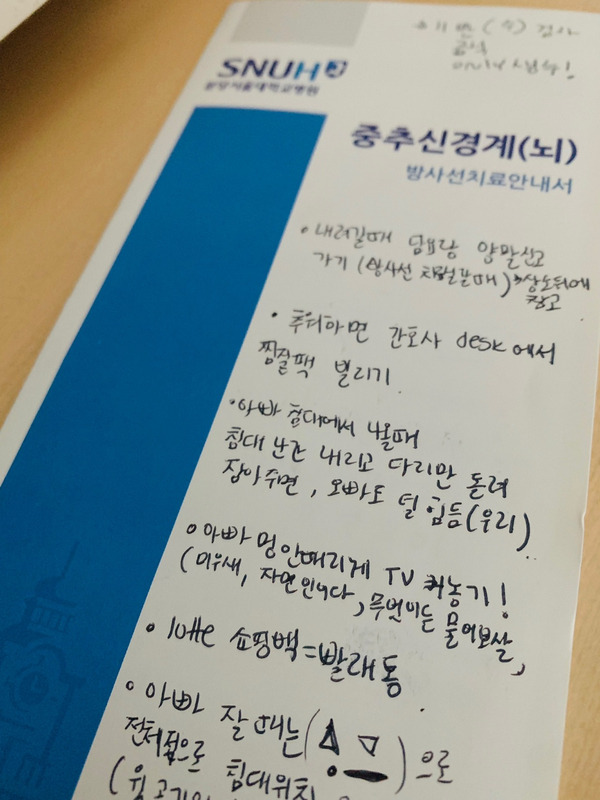 검사
SNUH
분당서울대학교병원
중추신경계(뇌)
방사선치료안내서
• 내려갈때 담요랑 양말신고
가기 (방사선 치료갈때)
참고
• 추워하면 간호사 desk에서
찜질팩 빌리기
• 아빠 침대에서 나올때
침대 난간 내리고 다리만 돌려
잡아주면, 오빠도 덜 힘듬(우리)
• 아빠 멍 안때리게 TV 켜놓기!
(미우새, 자연인이다, 무엇이든 물어보살,
• lotte 쇼핑백 = 빨래통
• 아빠 잘 때는 ( ) 으로
전체적으로 침대위치